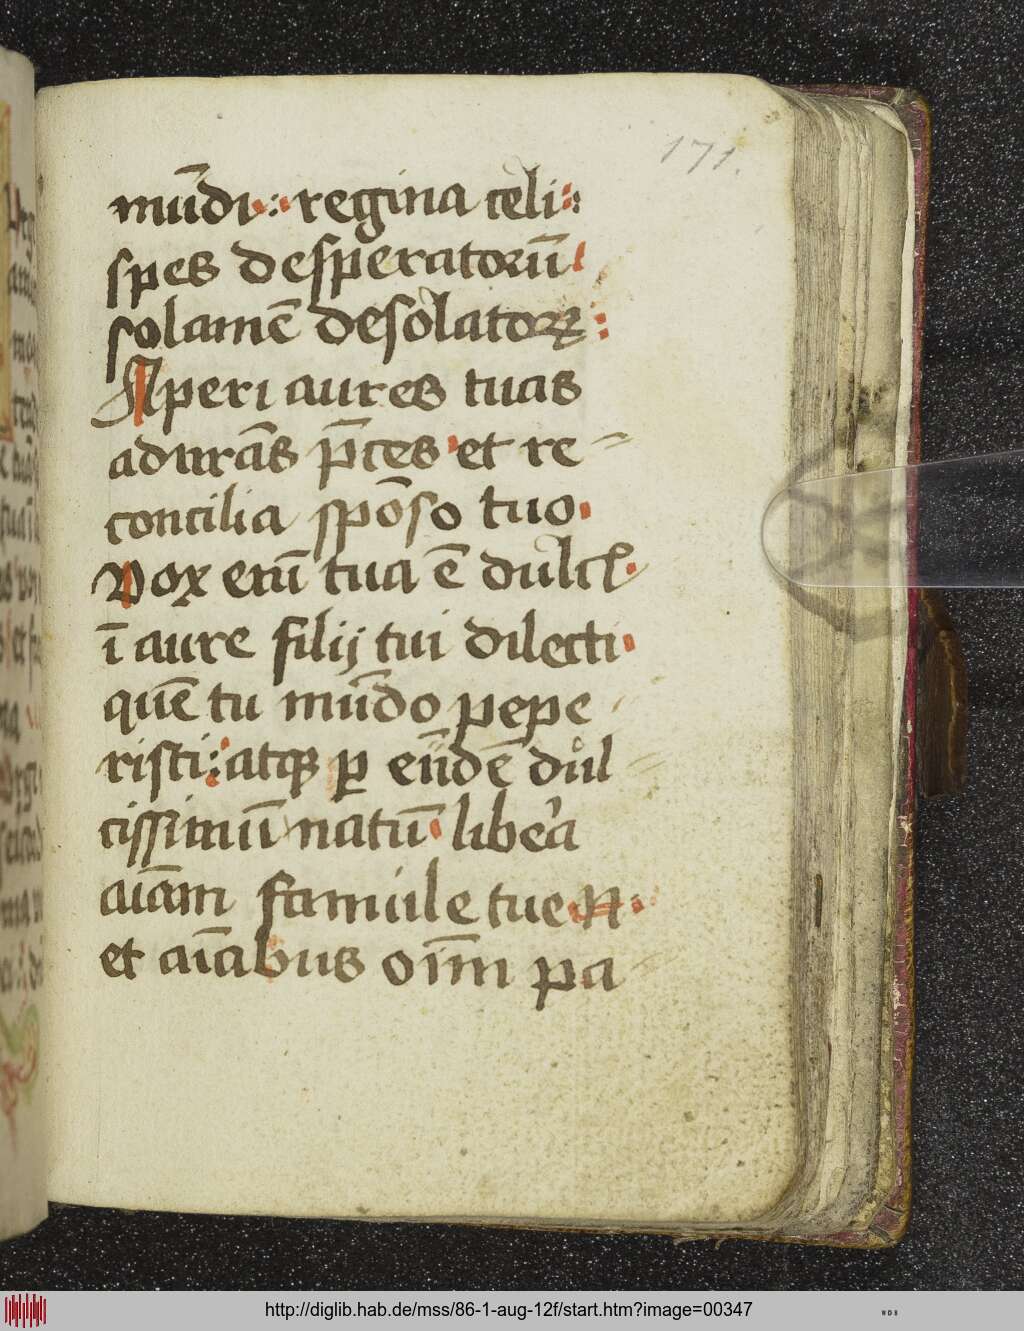 171.
mūdi regina celi
spes desperatorū
solamē desolatoꝝ
Aperi aures tuas
ad ur̄ās p̄ces et re
concilia spōso tuo
Vox enī tua ē dulcꝭ
ī aure filij tui dilecti
quē tu mūdo pepe
risti atqꝫ ꝑ eūdē dul
cissimū natū libera
aīam famule tue N
et aīabus oīm pa
http://diglib.hab.de/mss/86-1-aug-12f/start.htm?image=00347